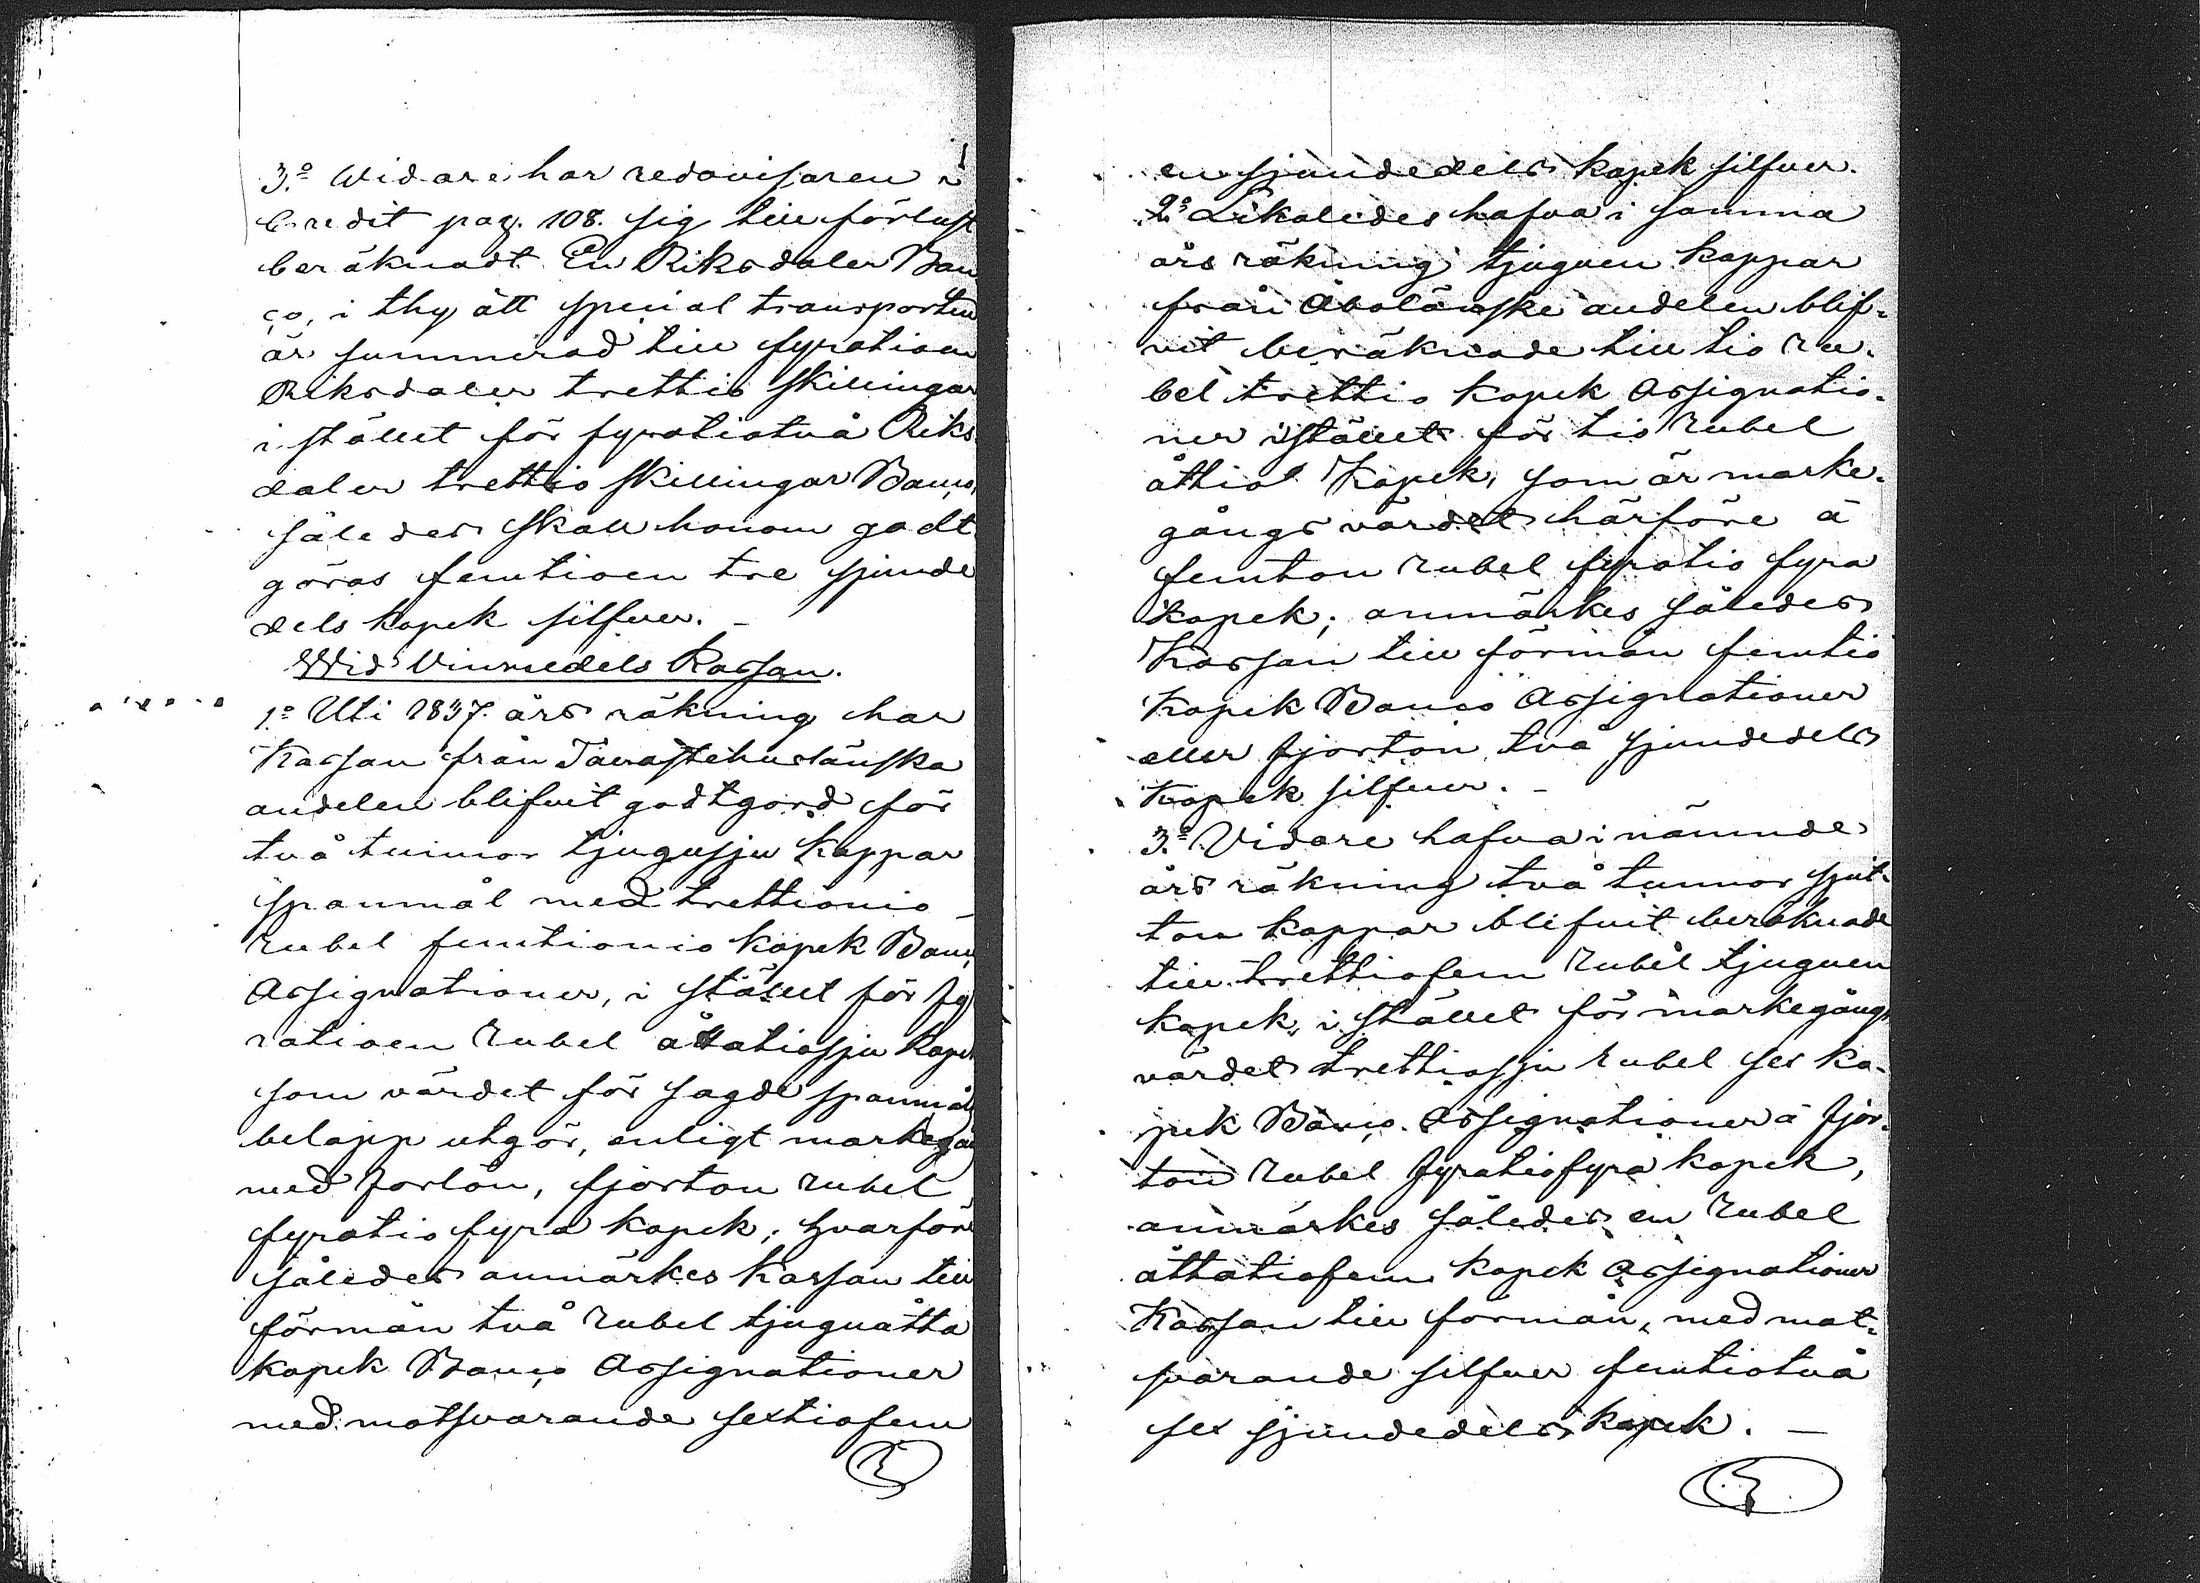 3:o Widare har redovisaren i
Credit pag. 108. sig till förlust
beräknadt En Riksdaler Ban
co, i thy att special transporten
är summerad till fyratioen
Riksdaler trettio skillingar
i stället för fyratiotvå Riks
daler trettio skillingar Banco,
således skall honom godt
göras femtioen tre sjunde
dels kopek silfver. –
Wid Vinmedels Kassan.
1:o Uti 1837. års räkning har
Kassan från Tavastehuslänska
andelen blifvit godtgord för
två tunnor tjugusju kappar
spanmål med trettionio
rubel femtionio kopek Banco
Assignationer, i stället för fy
ratioen rubel åttatiosju kopek
som värdet för sagde spanmåls
belopp utgör, enligt markegån
med forlön, fjorton rubel
fyratiofyra kopek; hvarföre
således anmärkes Kassan till
förmån två rubel tjuguåtta
kopek Banco Assignationer
med motsvarande sextiofem
en sjundedels kopek silfver.
2:o Likaledes hafva i samma
års räkning tjuguen kappar
från Åbolänske andelen blif-
vit beräknade till tio ru-
bel trettio kopek Assignatio-
ner i stället för tio rubel
åttio kopek, som är marke-
gångsvärdet härföre à
femton rubel fyratio fyra
kopek; anmärkes således
Kassan till förmån femtio
kopek Banco Assignationer
eller fjorton två sjundedels
kopek silfver. –
3:o Vidare hafva i nämnde
års räkning två tunnor sjut-
ton kappar blifvit beräknade
till trettiofem rubel tjuguen
kopek, i stället för markegångs
värdet trettiosju rubel sex ko-
pek Banco Assignationer à fjor-
ton rubel fyratiofyra kopek,
anmärkes således en rubel
åttatiofem kopek Assignationer
Kassan till förmån, med mot-
svarande silfver femtiotvå
sex sjundedels kopek. –